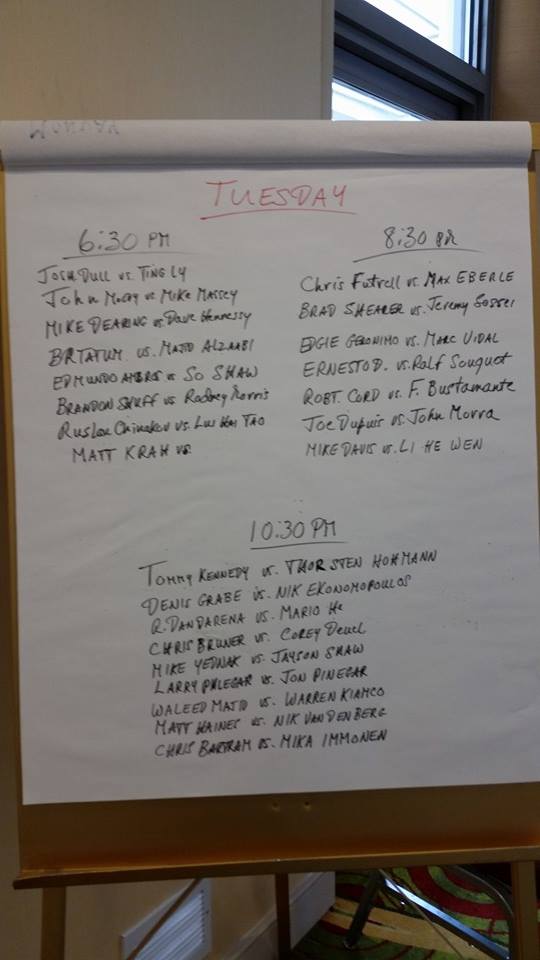 TUESDAY
6:30 PM
JOSH DULL vs. TING LY
John McCay vs Mike Massey
MIKE DEARING vs. Dave Hennessy
BRTATUM vs. MAJID ALZAABI
EDMUNDO vs SO SHAW
BRANDON SHUFF vs Rodney Morris
Ruslan Chinakov vs.
MATT KRAH vs
8:30
Chris Futrell vs MAX EBERLE
BRAD SHEARER vs. Jeremy
EDGIE GERONIMO vs. MARC VIDAL
ERNESTO D. vs. Ralf Souquet
ROBT. CORD vs F. Bustamante
Joe Dupuis vs. John Morra
MIKE DAVIS vs. LI HE WEN
10:30 PM
Tommy KENNEDY vs. THORSTEN HOHMANN
DENIS GRABE vs. NIK EKONOMOPOULOS
R. DANDARENA vs. MARIO He
CHRIS BRUNER vs. COREY Deuel
MIKE YEDNAK vs. JAYSON SHAW
LARRY PHLEGAR vs. JON PINEGAR
WALEED MAJID vs. WARREN KIAMCO
MATT HAINES vs. NIK VAN DEN BERG
CHRIS BARTRAM vs. MIKA IMMONEN